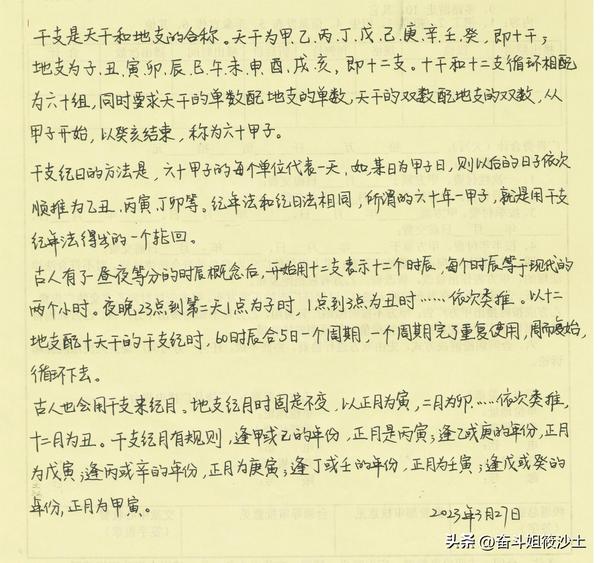 干支是天干和地支的合称。天干为甲、乙、丙、丁、戊、己、庚、辛、壬、癸，即十干；
地支为子、丑、寅、卯、辰、巳、午、未、申、酉、戌、亥，即十二支。十干和十二支循环相配
为六十组，同时要求天干的单数配地支的单数，天干的双数配地支的双数，从
甲子开始，以癸亥结束，称为六十甲子。
干支纪日的方法是，六十甲子的每个单位代表一天，如某日为甲子日，则以后的日子依次
顺推为乙丑、丙寅、丁卯等。纪年法和纪日法相同，所谓的六十年一甲子，就是用干支
纪年法得出的一个轮回。
古人有了一昼夜等分的时辰概念后，开始用十二支表示十二个时辰，每个时辰等于现代的
两个小时。夜晚23点到第二天1点为子时，1点到3点为丑时……依次类推。以十二
地支配十天干的干支纪时，60时辰合5日一个周期，一个周期完了重复使用，周而复始，
循环下去。
古人也会用干支来纪月。地支纪月时固定不变，以正月为寅，二月为卯……依次类推，
十二月为丑。干支纪月有规则，逢甲或己的年份，正月是丙寅；逢乙或庚的年份，正月
为戊寅；逢丙或辛的年份，正月为庚寅；逢丁或壬的年份，正月为壬寅；逢戊或癸的
年份，正月为甲寅。
2023年3月27日
头条@奋斗姐筱沙土